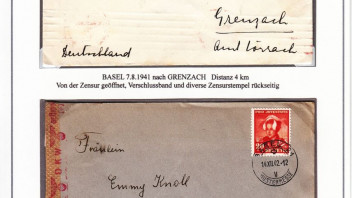 Grenzach
Deutschland
Amt Lörrach
BASEL 7.8.1941 nach GRENZACH Distanz 4 km
Von der Zensur geöffnet, Verschlussband und diverse Zensurstempel rückseitig
Fräulein
Emmy Knoll